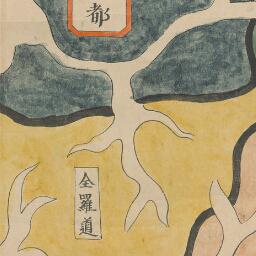 都
全羅道